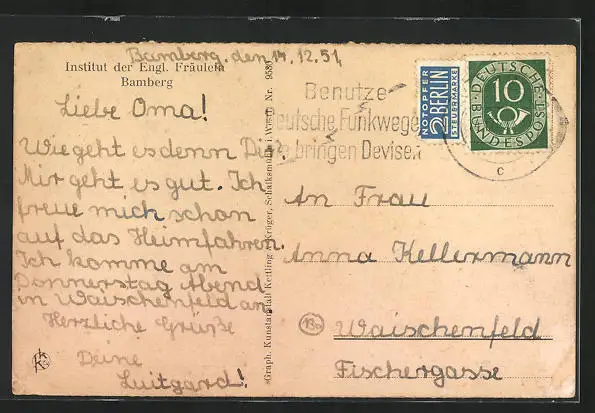 Bamberg, den 14.12.51
Institut der Engl. Fräulein
Bamberg
Liebe Oma!
Wie geht es denn Dir?
Mir geht es gut. Ich
freue mich schon
auf das Heimfahren.
Ich komme am
Donnerstag Abend
in Waischenfeld an
Herzliche Grüße
Deine
Luitgard!
Graph. Kunstanstalt Kettling & Krüger, Schalksmühle i. Westf. Nr. 9580
Benutze
Deutsche Funkwege
Sie bringen Devisen
NOTOPFER
2 BERLIN
STEUERMARKE
DEUTSCHE
10
BUNDESPOST
c
An Frau
Anna Kellermann
Waischenfeld
Fischergasse